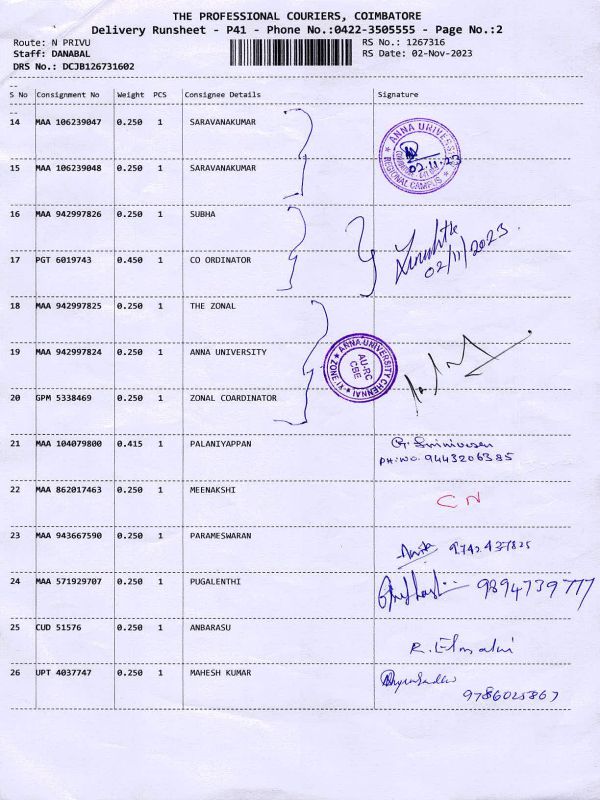 THE PROFESSIONAL COURIERS, COIMBATORE
Delivery Runsheet - P41 - Phone No.:0422-3505555 - Page No.:2
Route: N PRIVU
RS No.: 1267316
Staff: DANABAL
RS Date: 02-Nov-2023
DRS No.: DCJB126731602
S No Consignment No Weight PCS Consignee Details Signature
14 MAA 106239047 0.250 1 SARAVANAKUMAR
ANNA UNIVERSITY
REGIONAL CAMPUS
02.11.23
15 MAA 106239048 0.250 1 SARAVANAKUMAR
16 MAA 942997826 0.250 1 SUBHA
02/11/2023
17 PGT 6019743 0.450 1 CO ORDINATOR
18 MAA 942997825 0.250 1 THE ZONAL
19 MAA 942997824 0.250 1 ANNA UNIVERSITY
ANNA UNIVERSITY CHENNAI
ZONE-XI
AU-RC
CBE
20 GPM 5338469 0.250 1 ZONAL COARDINATOR
21 MAA 104079800 0.415 1 PALANIYAPPAN
G. Srinivasan
PH:NO. 9443206385
22 MAA 862017463 0.250 1 MEENAKSHI
CN
23 MAA 943667590 0.250 1 PARAMESWARAN
24 MAA 571929707 0.250 1 PUGALENTHI
9894739777
25 CUD 51576 0.250 1 ANBARASU
26 UPT 4037747 0.250 1 MAHESH KUMAR